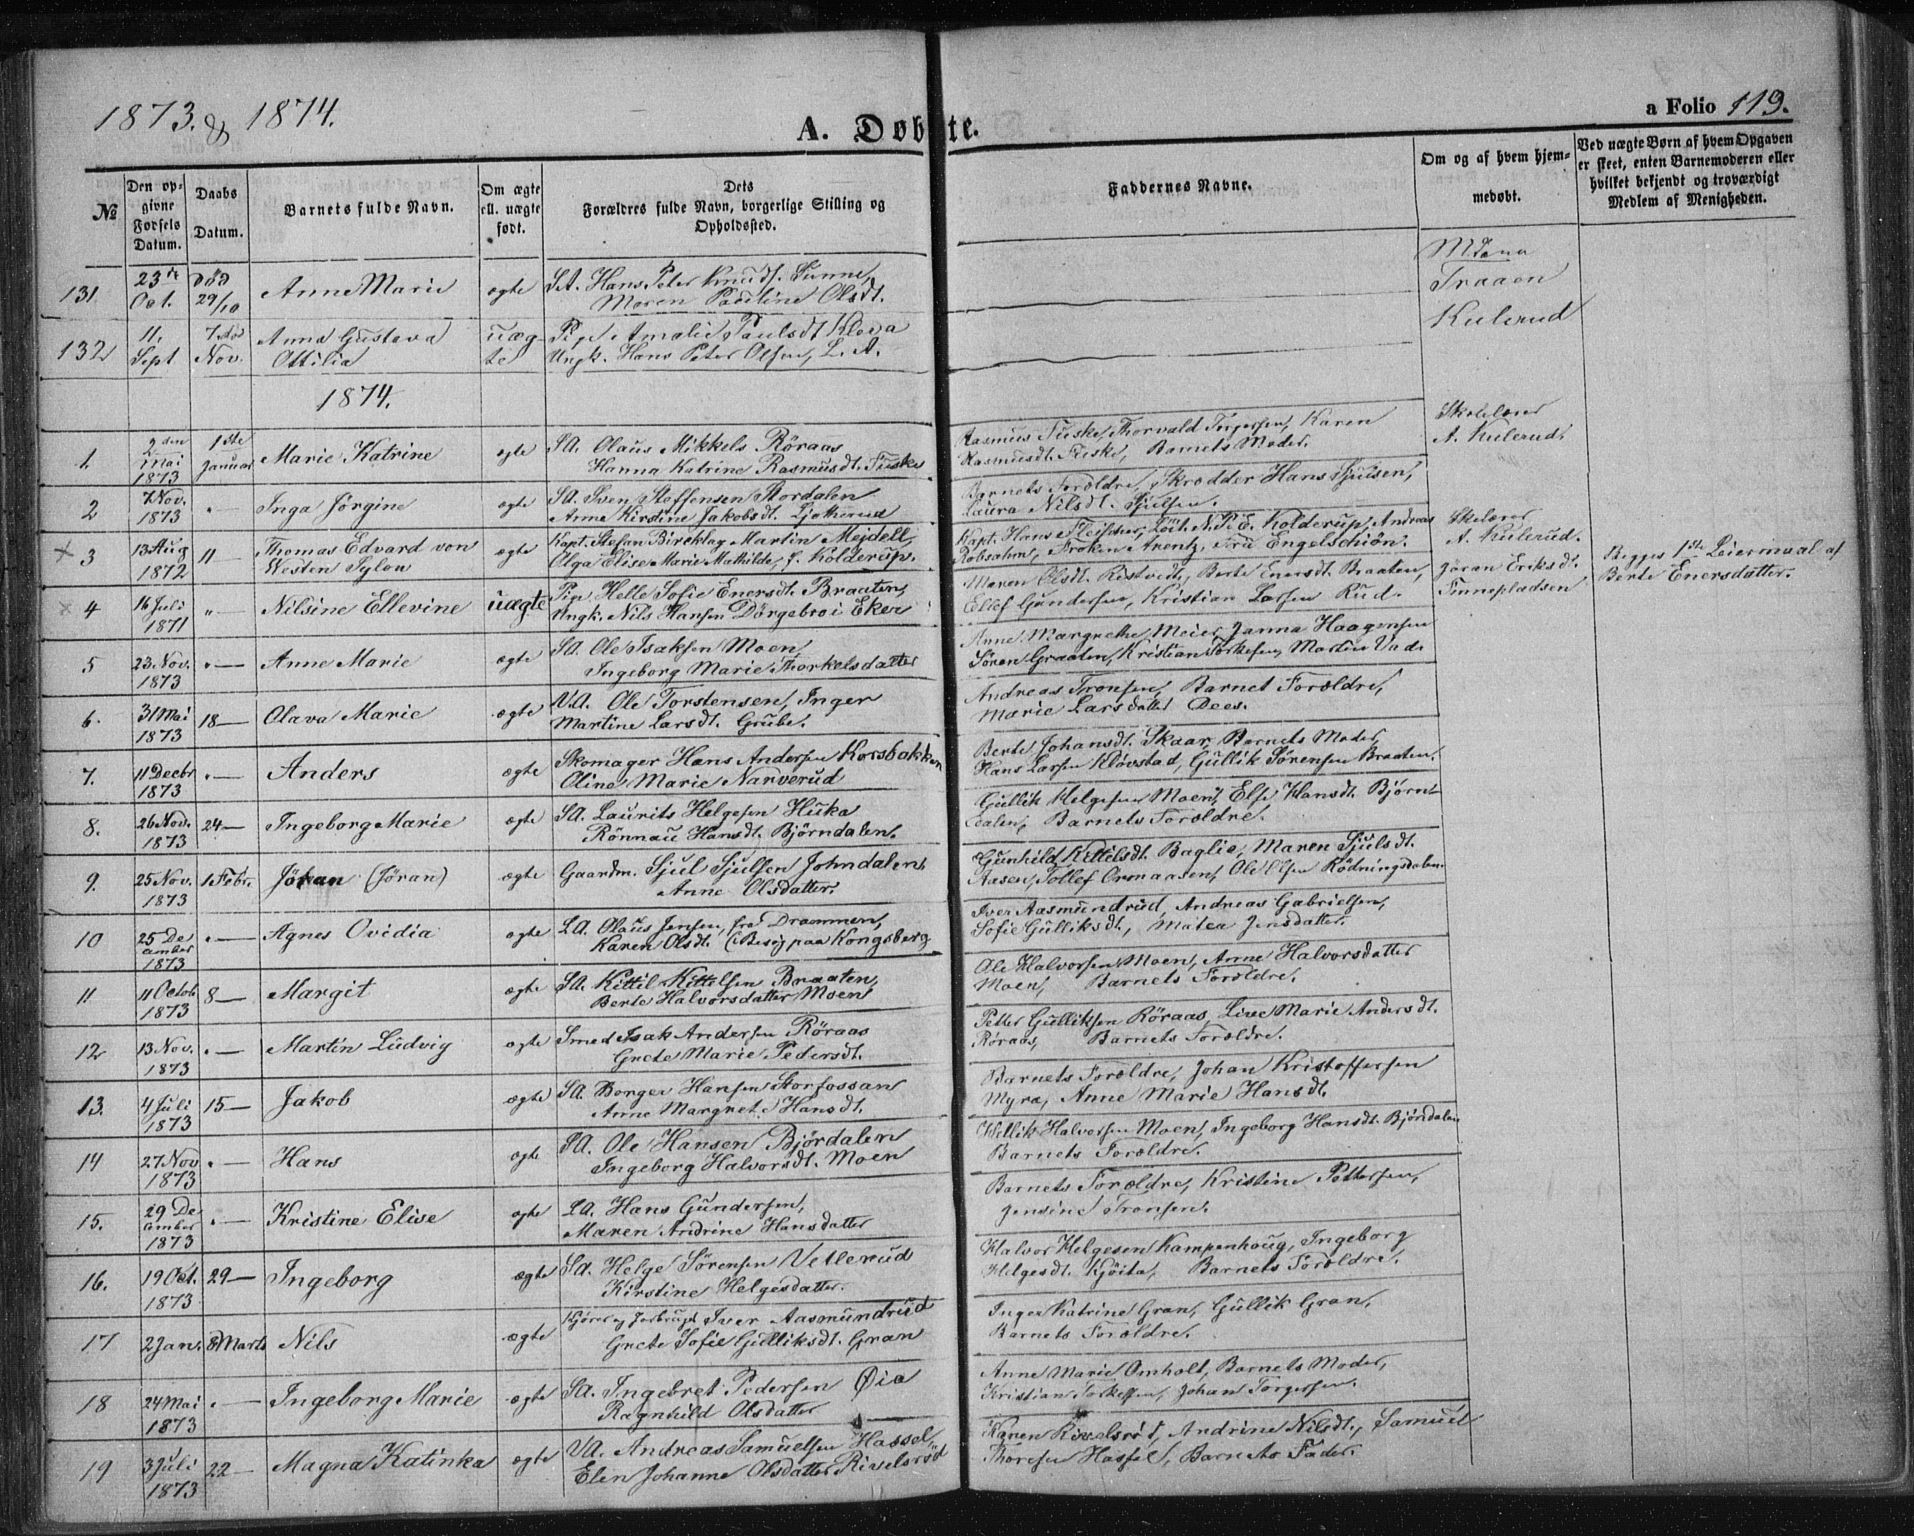 1873. & 1874.
A. Döbte.
a Folio 119.
№
Den opgivne Fødsels Datum.
Daabs Datum.
Barnets fulde Navn.
Om ægte ell. uægte født.
Dets Forældres fulde Navn, borgerlige Stilling og Opholdssted.
Faddernes Navne.
Om og af hvem hjemmedøbt.
Ved uægte Børn af hvem Opgaven er skeet, enten Barnemoderen eller hvilket bekjendt og troværdigt Medlem af Menigheden.
131 23de Oct. Död 29/10 Anne Marie ægte SA. Hans Peter Knudt.
Maren Pauline Olsdt.
Traaen
Kulerud
132 11. Sept Nov. Anna Gustava uæg-
Ottilia te Pige Amalie Paulsdt Kleva
Ungk. Hans Peter Olsen, L. A.
1874.
1 2den Mai 1873 1ste Januar Marie Katrine ægte SA. Olaus Mikkels Röraas
Hanna Katrine Rasmusdt. Fuske
Rasmus Fuske, Thorvald Torgersen, Karen
Rasmusdt. Fuske, Barnets Moder.
Skolelærer
A. Kulerud.
2 7 Nov. 1873 " — Inga Jörgine ægte SA. Sven Steffensen Stordalen
Anne Kirstine Jakobsdt.
Barnets Forældre, Skrædder Hans Sjulsen,
Laura Nilsdt. Sjulsen.
× 3 13 Aug 1872 " Thomas Edvard von
Westen Sylow ægte Kapt. Stefan Bircklag Martin Mejdell,
Olga Elise Marie Mathilde, f. Kolderup.
Kapt. Hans Fleischer, Löit. N. P. E. Kolderup, Andreas
Robsahm, Fröken Arentz, Fru Engelschiön.
Skolelærer
A. Kulerud.
× 4 16 Juli 1871 " — Nilsine Ellevine uægte Pige Helle Sofie Enersdt. Braaten,
Ungk. Nils Hansen Dörgebroi Eker
Maren Olsdt. Ristvedt, Berte Enersdt. Braaten,
Ellef Gundersen, Kristian Larsen Rud.
Jöran Eriksdt.
Finnepladsen
Begges 1ste Leiermaal af
Berte Enersdatter.
5 23. Nov. 1873 " — Anne Marie ægte SA. Ole Isaksen Moen
Ingeborg Marie Thorkelsdatter
Anne Margrethe Meier, Janna Haagensen
Sören Graaten, Kristian Torkesen, Martin Vad.
6. 31 Mai 1873 18 — Olava Marie ægte VA. Ole Torstensen, Inger
Martine Larsdt. Grube.
Andreas Tronsen, Barnet Forældre,
Marie Larsdatter Dees.
7. 11 Decbr 1873 " — Anders ægte Skomager Hans Andersen Korsbakken
Oline Marie Narverud
Berte Johansdt. Skaar, Barnets Moder,
Hans Larsen Klovstad, Gullik Sörensen Braaten.
8. 26 Nov. 1873 24 — Ingeborg Marie ægte SA. Laurits Helgesen Huka
Rönnau Hansdt. Björndalen.
Gullik Helgesen Moen, Else Hansdt. Björn-
dalen, Barnets Forældre.
9. 25 Nov. 1873 1 Febr. Jöran (Jöran) ægte Gaardm. Sjul Sjulsen Johndalen
Anne Olsdatter.
Gunhild Kittilsdt. Baglie, Maren Sjulsdt.
Aasen, Tollef Ormaasen, Ole Olsen Rödningsdalen
10 25 December 1873 " — Agnes Ovidia ægte LA. Olaus Jensen, fra Drammen,
Karen Olsdt. (Besög paa Kongsberg
Iver Aasmundrud, Andreas Gabrielsen,
Sofie Gulliksdt., Matea Jensdatter.
11 11 Octob 1873 8 — Margit ægte SA. Kittil Kittelsen Braaten,
Berte Halvorsdatter Moen
Ole Halvorsen Moen, Anne Halvorsdatter
Moen, Barnets Forældre.
12 13 Nov. 1873 " — Martin Ludvig ægte Smed Isak Andersen Röraas
Grete Marie Pedersdt.
Petter Gulliksen Röraas, Live Marie Andersdt.
Röraas, Barnets Forældre.
13. 4 Juli 1873 15 — Jakob ægte SA. Borger Hansen Storfossan
Anne Margret. Hansdt.
Barnets Forældre, Johan Kristoffersen
Myra, Anne Marie Hansdt.
14 27 Nov 1873 " — Hans ægte SA. Ole Hansen Björdalen
Ingeborg Halvorsdt. Moen
Halvorsen Moen, Ingeborg Hansdt. Björndalen
Barnets Forældre.
15. 29 December 1873 " — Kristine Elise ægte LA. Hans Gundersen,
Maren Andrine Hansdatter
Barnets Forældre, Kristine Pettersen,
Jensine Tronsen.
16. 19 Oct. 1873 29 — Ingeborg ægte SA. Helge Sörensen Vetlerud
Kirstine Helgesdatter.
Halvor Helgesen Kampenhoug, Ingeborg
Helgesdt. Kjöita, Barnets Forældre.
17 2 Jan. 8 Marts Nils ægte Kjörer og Iver Aasmundrud
Grete Sofie Gulliksdt. Gran
Inger Katrine Gran, Gullik Gran,
Barnets Forældre.
18 24 Mai 1873 " — Ingeborg Marie ægte SA. Ingebret Pedersen Øia
Ragnhild Olsdatter
Anne Marie Omholt, Barnets Moder,
Kristian Torkelsen, Johan Torgersen.
19 3 Juli 1873 22 — Magna Katinka ægte VA. Andreas Samuelsen Hassel,
Elen Johanne Olsdatter Rivelsröd
Karen Rivelsröd, Andrine Nilsdt., Samuel
Thoresen Hassel, Barnets Fader.